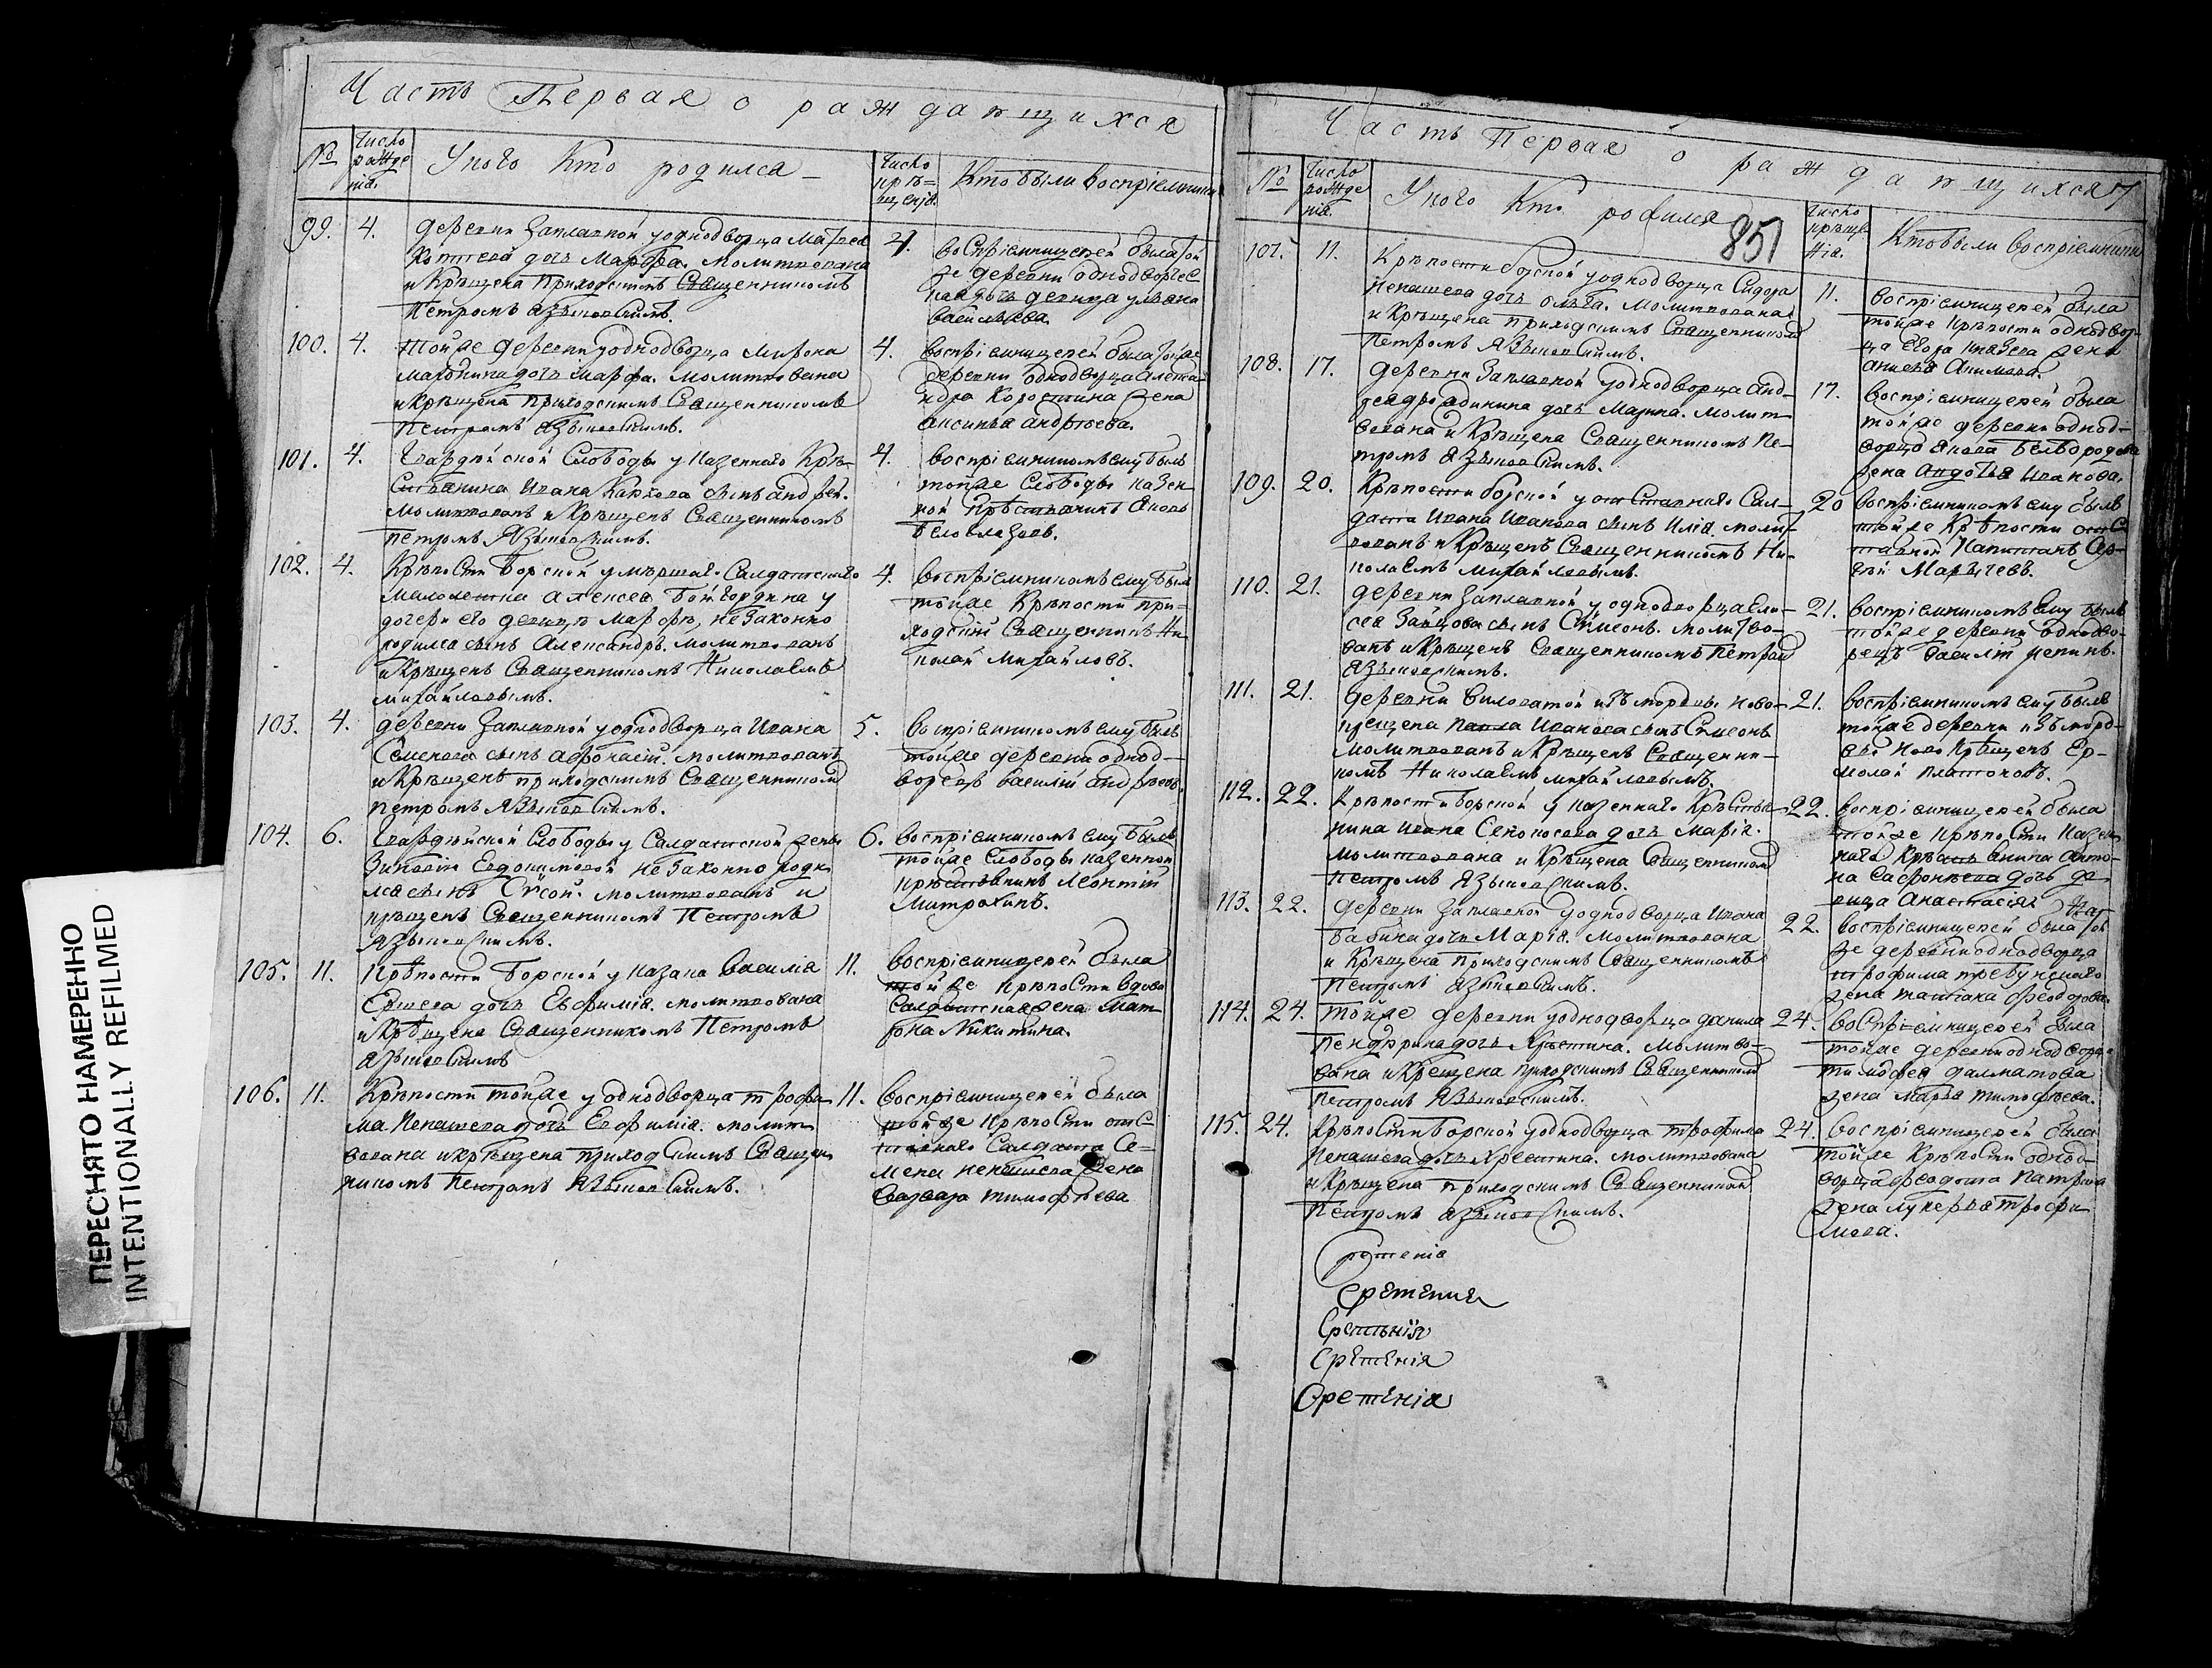 Часть Первая о раждающихся
№
Число рожденiя.
У кого Кто родился
Число крѣщенiя.
Кто были воспрiемники
99. 4. деревни Заплавной у однодворца Матвея
Коптева дочь Марфа. Молитвована
и Крѣщена Приходскимъ Священникомъ
Петромъ Языковскимъ.
4. воспрiемницей была той
же деревни однодворчес
кая дочь девица ульяна
васильева.
100. 4. Той же деревни у однодворца Мирона
дочь Марфа. Молитвована
и Крѣщена Приходскимъ Священникомъ
Петромъ Языковскимъ.
4. воспрiемницей была той же
деревни однодворца Алекса
ндра Коростина жена
аксинья андрѣева.
101. 4. Гвардейской Слободы у Казеннаго Крѣ-
стьянина Ивана сынъ андрей.
Молитвованъ и Крѣщенъ Священникомъ
Петромъ Языковскимъ.
4. воспрiемникомъ ему былъ
той же Слободы казен
ной Крѣстьянинъ Яковъ
Белоглазовъ.
102. 4. Крѣпости Борской умершаго Салдатскаго
малолетка алексея у
дочери его девицы Марфы, не законно
родился сынъ Александръ. молитвованъ
и Крѣщенъ Священникомъ Николаемъ
михайловымъ.
4. воспрiемникомъ ему былъ
той же Крѣпости при-
ходскiй Священникъ Ни
колай Михайловъ.
103. 4. деревни Заплавной у однодворца Ивана
Семенова сынъ афонасiй. молитвованъ
и Крѣщенъ приходскимъ Священникомъ
Петромъ Языковскимъ.
5. воспрiемникомъ ему былъ
той же деревни однод-
ворецъ Василiй андрѣевъ.
104. 6. Гвардейской Слободы у Салдатской жены
Зиновiи Евдокимовой не Законно роди
лся сынъ Сысой. молитвованъ и
крѣщенъ Священникомъ Петромъ
Языковскимъ.
6. воспрiемникомъ ему былъ
той же Слободы казенной
крѣстьянинъ Леонтiй
Митрохинъ.
105. 11. Крѣпости Борской у Казака Василiя
Ершева дочь Евфимiя. молитвована
и Крѣщена Священникомъ Петромъ
Языковскимъ
11. воспрiемницей была
той же крѣпости вдова
Салдатская жена Мат
рона Никитина.
106. 11. Крѣпости той же у однодворца трофи
ма Ненашева дочь Евфимiя. молит
вована и крѣщена приходскимъ Священ
никомъ Петромъ Языковскимъ.
11. воспрiемницей была
той же крѣпости отс
тавнаго Салдата Се=
мена ненашева жена
Варвара тимофѣева
Часть Первая о раждающихся
7
851
№
Число рожденiя.
У кого Кто родился
Число крѣщенiя.
Кто были воспрiемники
107. 11. Крѣпости борской у однодворца Сидора
Ненашева дочь ольга. молитвована
и Крѣщена приходскимъ Священникомъ
Петромъ Языковскимъ.
11. воспрiемницей была
той же крѣпости однодвор-
ца Егора князева жена
Акимова.
108. 17. деревни Заплавной у однодворца анд-
рея дочь Марина. Молит-
вована и Крѣщена Священникомъ Пе-
тромъ Языковскимъ.
17. воспрiемницей была
той же деревни однод-
ворца Якова Белгородова
жена авдотья Иванова.
109. 20. Крѣпости борской у отставнаго Сал-
дата Ивана Иванова сынъ Илiя. молит-
вованъ и Крѣщенъ Священникомъ Ни-
колаемъ Михайловымъ.
20 воспрiемникомъ ему былъ
той же Крѣпости отс
тавной Капитанъ Сер-
гей Марычевъ.
110. 21. деревни Заплавной у однодворца Ели-
сея Зайцова сынъ Симеонъ. молитво-
ванъ и Крѣщенъ Священникомъ Петромъ
Языковскимъ.
21. воспрiемникомъ ему былъ
той же деревни однодво-
рецъ Василiй репинъ.
111. 21. деревни Виловатой изъ мордвы ново-
крещена Павла Иванова сынъ Симеонъ
молитвованъ и Крѣщенъ Священни-
комъ Николаемъ михайловымъ.
21. воспрiемникомъ ему былъ
той же деревни изъ морд-
вы новокрѣщенъ Ер-
молай платоновъ.
112. 22. Крѣпости борской у казеннаго Крѣстья-
нина ивана Сенокосова дочь Марiя.
молитвована и Крѣщена Священникомъ
Петромъ Языковскимъ.
22. воспрiемницей была
той же крѣпости Казен
наго Крѣстьянина анто-
на Сафонтьева дочь де-
вица Анастасiя.
113. 22. деревни Заплавной у однодворца Ивана
бабина дочь Марiя. Молитвована
и Крѣщена Приходскимъ Священникомъ
Петромъ Языковскимъ.
22. воспрiемницей была той
же деревни однодворца
трофима требунскаго
жена татiана феодорова.
114. 24. той же деревни у однодворца данила
дочь Христина. Молитво-
вана и Крещена приходскимъ Священникомъ
Петромъ Языковскимъ.
24. воспрiемницей была
той же деревни однодворца
тимофея далматова
жена марья тимофѣева.
115. 24. Крѣпости Борской у однодворца Трофима
Ненашева дочь Христина. молитвована
и Крѣщена приходскимъ Священникомъ
Петромъ Языковскимъ.
24. воспрiемницей была
той же Крѣпости однод-
ворца
жена лукерья трофи
мова.
Сретенiя
Сретения
Сретънiя
Сретенiя
Сретенiя
ПЕРЕСНЯТО НАМЕРЕННО
INTENTIONALLY REFILMED